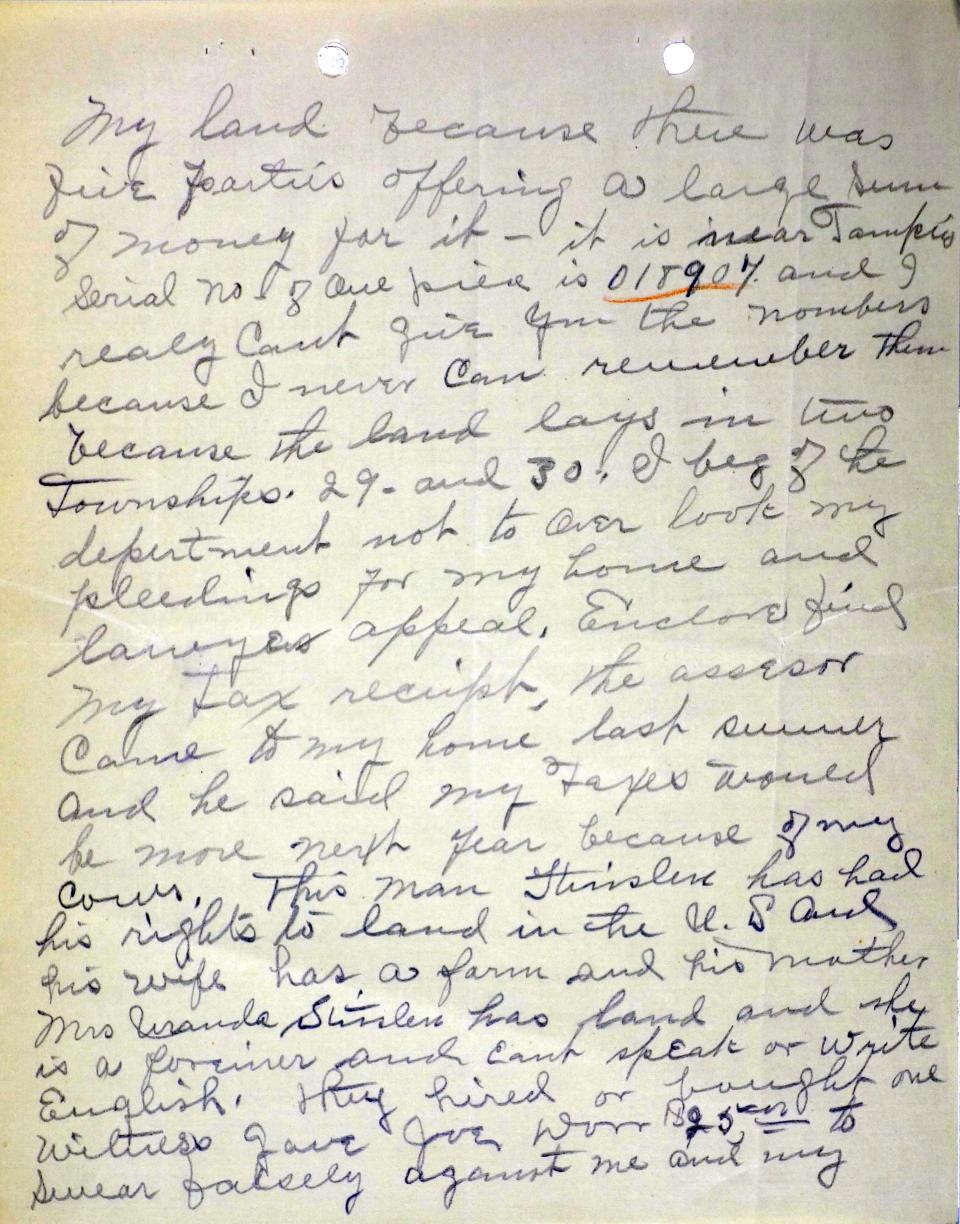 My land because there was
five parties offering a large sum
of money for it - it is near Tampico
Serial no. of one piece is 018907. and I
realy Cant give you the nombers
because I never Can remember them
because the land lays in two
Townships. 29. and 30. I beg of the
depertment not to over look my
pleedings for my home and
lawyers appeal. Enclose find
My tax receipt, the assesor
Came to my home last summer
and he said my taxes would
be more next year because of my
cows. This man Stinslen has had
his rights to land in the U. S and
his wife has a farm and his mother
Mrs Stinslen has land and she
is a foreiner and cant speak or write
English. they hired or bought one
Wittness gave Joe Worr $25.00 to
swear falsely against me and my